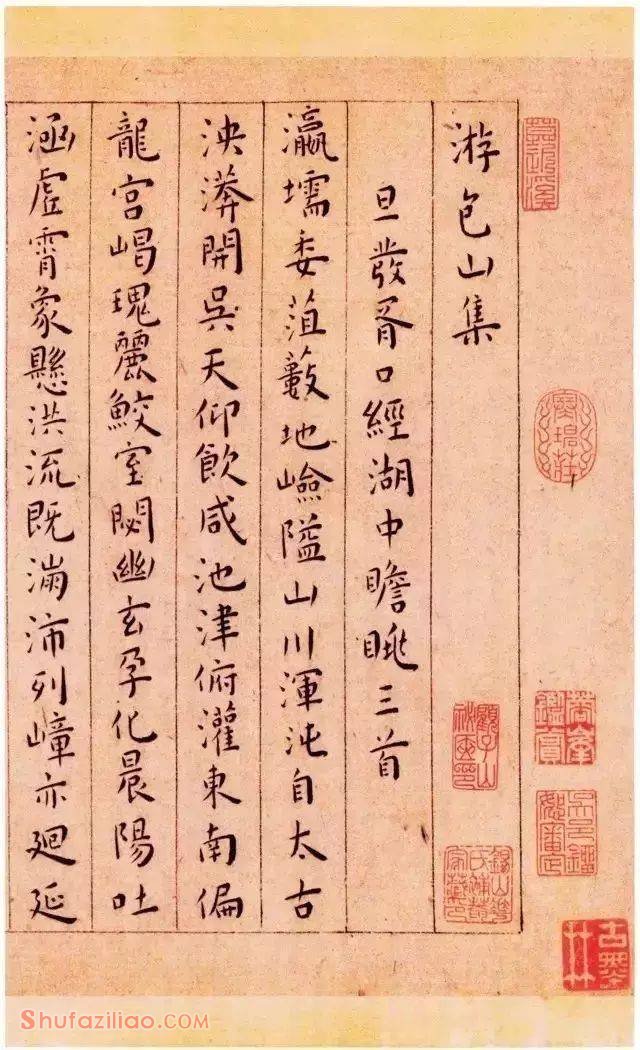 游包山集
旦發胥口經湖中瞻眺三首
瀛壖委菹藪地嶮隘山川渾沌自太古
泱漭開吳天仰飲咸池津俯灌東南偏
龍宮嵑瑰麗鮫室閟幽玄孕化晨陽吐
涵虛霄象懸洪流既滿沛列嶂亦廻延
Shufaziliao.COM